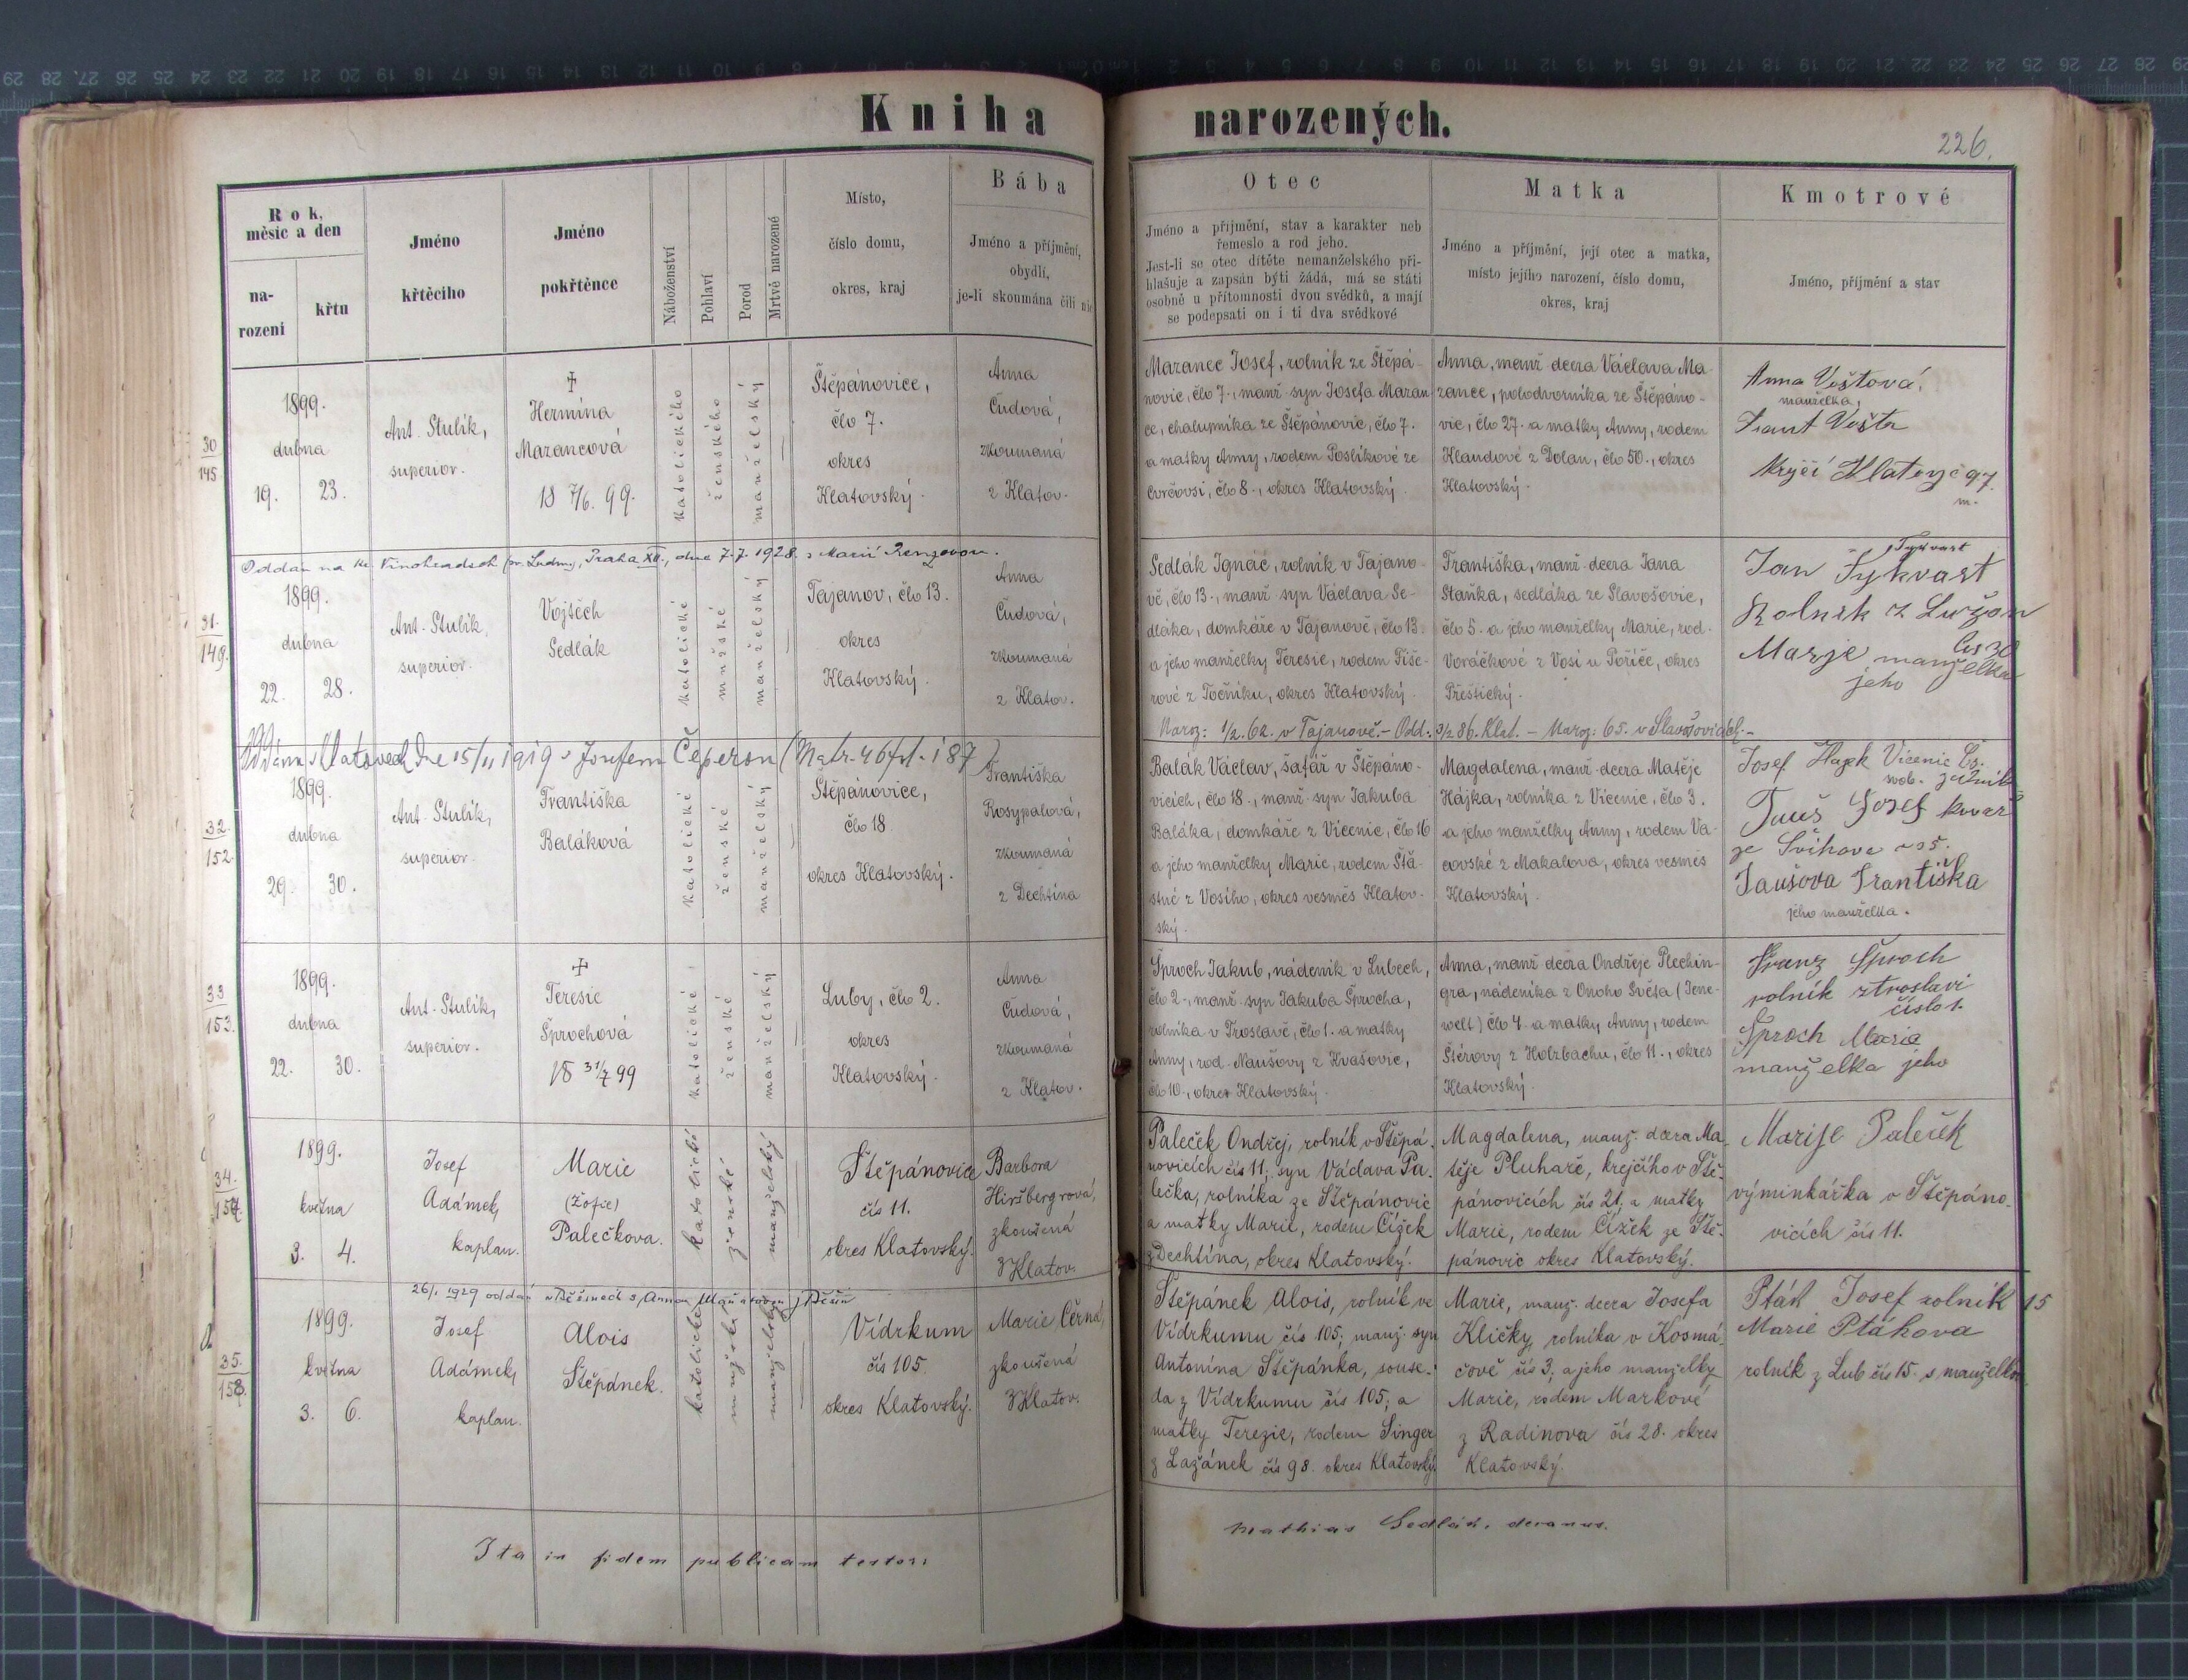 Kniha narozených.
226.
Rok, měsíc a den
narození
křtu
Jméno křtěcího
Jméno pokřtěnce
Náboženství
Pohlaví
Porod
Mrtvě narozené
Místo,
číslo domu,
okres, kraj
Bába
Jméno a příjmění,
obydlí,
je-li skoumána čili nic
Otec
Jméno a příjmění, stav a karakter neb
řemeslo a rod jeho.
Jest-li se otec dítěte nemanželského při-
hlašuje a zapsán býti žádá, má se státi
osobně u přítomnosti dvou svědků, a mají
se podepsati on i ti dva svědkové
Matka
Jméno a příjmění, její otec a matka,
místo jejího narození, číslo domu,
okres, kraj
Kmotrové
Jméno, příjmění a stav
30
145
1899.
dubna
19. 23.
Ant. Stulík,
superior.
Hermína
Mazancová
18 7/6. 99.
katolického
ženského
manželský
Štěpánovice,
čło 7.
okres
Klatovský.
Anna
Čudová,
zkoumaná
z Klatov.
Mazanec Josef, rolník ze Štěpá-
novic, čło 7., manž. syn Josefa Mazan-
ce, chalupníka ze Štěpánovic, čło 7.
a matky Anny, rodem Poslíkové ze
čło 8., okres Klatovský.
Anna, manž. dcera Václava Ma-
zance, polodvorníka ze Štěpáno-
vic, čło 27. a matky Anny, rodem
Hlaudové z Dolan, čło 50., okres
Klatovský.
Anna Voštová,
manželka,
Frant Vošta
Krejčí Klatovy č 97
m.
Oddán na Kr. Vinohradech (sv. Ludmily, Praha XII., dne 7.7. 1928 s Marií
31.
149.
1899.
dubna
22. 28.
Ant. Stulík,
superior.
Vojtěch
Sedlák
katolické
mužské
manželský
Tajanov, čło 13.
okres
Klatovský.
Anna
Čudová,
zkoumaná
z Klatov.
Sedlák Ignác, rolník v Tajano-
vě, čło 13., manž. syn Václava Se-
dláka, domkáře v Tajanově, čło 13.
a jeho manželky Teresie, rodem Fiše-
rové z Točníku, okres Klatovský.
Františka, manž. dcera Jana
Staňka, sedláka ze Slavošovic,
čło 5. a jeho manželky Marie, rod.
Voráčkové z Vosí u Poříče, okres
Přeštický.
Naroz: 1/2. 62. v Tajanově. – Odd.: 3/2 86. Klat. – Naroz: 65. v Slavošovicích. –
Tykvart
Jan Tykvart
Rolnik z Lužan
čís 30
Marje manželka
jeho
v Klatovech dne 15/11 1919 s Josefem Čeperou (Matr. 46 fol. 187)
32.
152.
1899.
dubna
29. 30.
Ant. Stulík,
superior.
Františka
Baláková
katolické
ženské
manželský
Štěpánovice,
čło 18.
okres Klatovský.
Františka
Rosypalová,
zkoumaná
z Dechtína
Balák Václav, šafář v Štěpáno-
vicích, čło 18., manž. syn Jakuba
Baláka, domkáře z Vícenic, čło 16
a jeho manželky Marie, rodem Šťa-
stné z Vosího, okres vesměs Klatov-
ský.
Magdalena, manž. dcera Matěje
Hájka, rolníka z Vícenic, čło 3.
a jeho manželky Anny, rodem Va-
covské z Makalova, okres vesměs
Klatovský.
Josef Hajek Vicenic čs.
Tauš Josef kovář
ze Švihova
Taušova Františka
jeho manželka.
33
153.
1899.
dubna
22. 30.
Ant. Stulík,
superior.
Teresie
Šprochová
18 31/7 99
katolické
ženské
manželský
Luby, čło 2.
okres
Klatovský.
Anna
Čudová,
zkoumaná
z Klatov.
Šproch Jakub, nádeník v Lubech,
čło 2., manž. syn Jakuba Šprocha,
rolníka v Troslavě, čło 1. a matky
Anny, rod. Naušovy z Kvašovic,
čło 10., okres Klatovský.
Anna, manž. dcera Ondřeje Plechin-
gra, nádeníka z Onoho Světa (Jene-
welt) čło 4. a matky Anny, rodem
Štérovy z Holzbachu, čło 11., okres
Klatovský.
Franz Šproch
rolník ztroslavi
číslo 1.
Šproch Marie
manželka jeho
34.
154.
1899.
května
3. 4.
Josef
Adámek,
kaplan.
Marie
(Žofie)
Palečkova.
katolické
ženské
manželský
Štěpánovice
čís 11.
okres Klatovský.
Barbora
Hiršbergrová,
zkoušená
z Klatov.
Paleček Ondřej, rolník v Štěpá-
novicích čís 11; syn Václava Pa-
lečka, rolníka ze Štěpánovic
a matky Marie, rodem Čížek
z Dechtína, okres Klatovský.
Magdalena, manž. dcera Ma-
těje Pluhaře, krejčího v Ště-
pánovicích čís 21, a matky
Marie, rodem Čížek ze Ště-
pánovic okres Klatovský.
Marije Paleček
výminkářka v Štěpáno-
vicích čís 11.
26/1 1929 oddán v s Annou
35.
158.
1899.
května
3. 6.
Josef
Adámek,
kaplan.
Alois
Štěpánek.
katolické
mužské
manželský
Vídrkum
čís 105.
okres Klatovský.
Marie Černá,
zkoušená
z Klatov.
Štěpánek Alois, rolník ve
Vídrkumu čís 105; manž. syn
Antonína Štěpánka, souse-
da z Vídrkumu čís 105; a
matky Terezie, rodem Singer
z Lažánek čís 98. okres Klatovský.
Marie, manž. dcera Josefa
Kličky, rolníka v Kosmá-
čově čís 3, a jeho manželky
Marie, rodem Markové
z Radinova čís 28. okres
Klatovský.
Pták Josef rolník 15
Marie Ptákova
rolník z Lub čís 15. s manželkou
Ita in fidem publicam testor:
Mathias Sedlák, decanus.